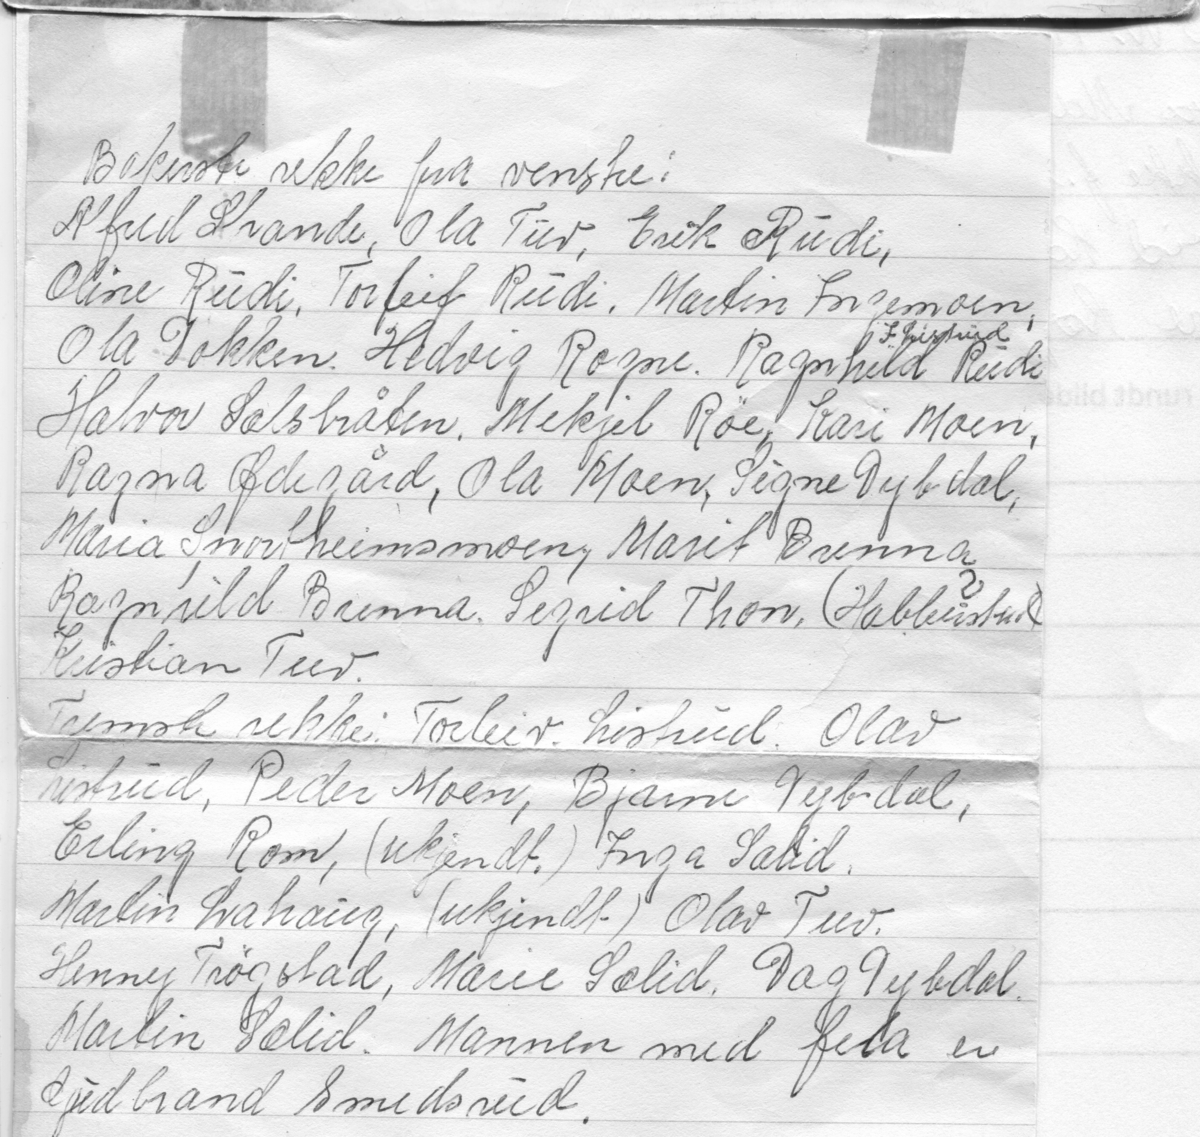 Bakerste rekke fra venstre:
Alfred Strande, Ola Tuv, Erik Rudi,
Oline Rudi, Torleif Rudi. Martin Ingemoen,
Ola Dokken. Hedvig Rogne. Ragnhild Rudi
F. Listrud
Halvor Sælsbråten. Mekjel Röe, Kari Moen,
Ragna Ødegård, Ola Moen, Signe Dybdal,
Maria Moen, Marit Brenna
Ragnhild Brenna. Sigrid Thon. (?
Kristian Tuv.
Fremste rekke: Torleiv. Listrud. Olav
Listrud, Peder Moen, Bjarne Dybdal,
Erling Rom, (ukjendt.) Inga Sælid.
Martin, (ukjendt) Olav Tuv.
Henny Trögstad, Marie Sælid. Dag Dybdal.
Martin Sælid. Mannen med fela er
Gudbrand Smedsrud.
rundt bilde